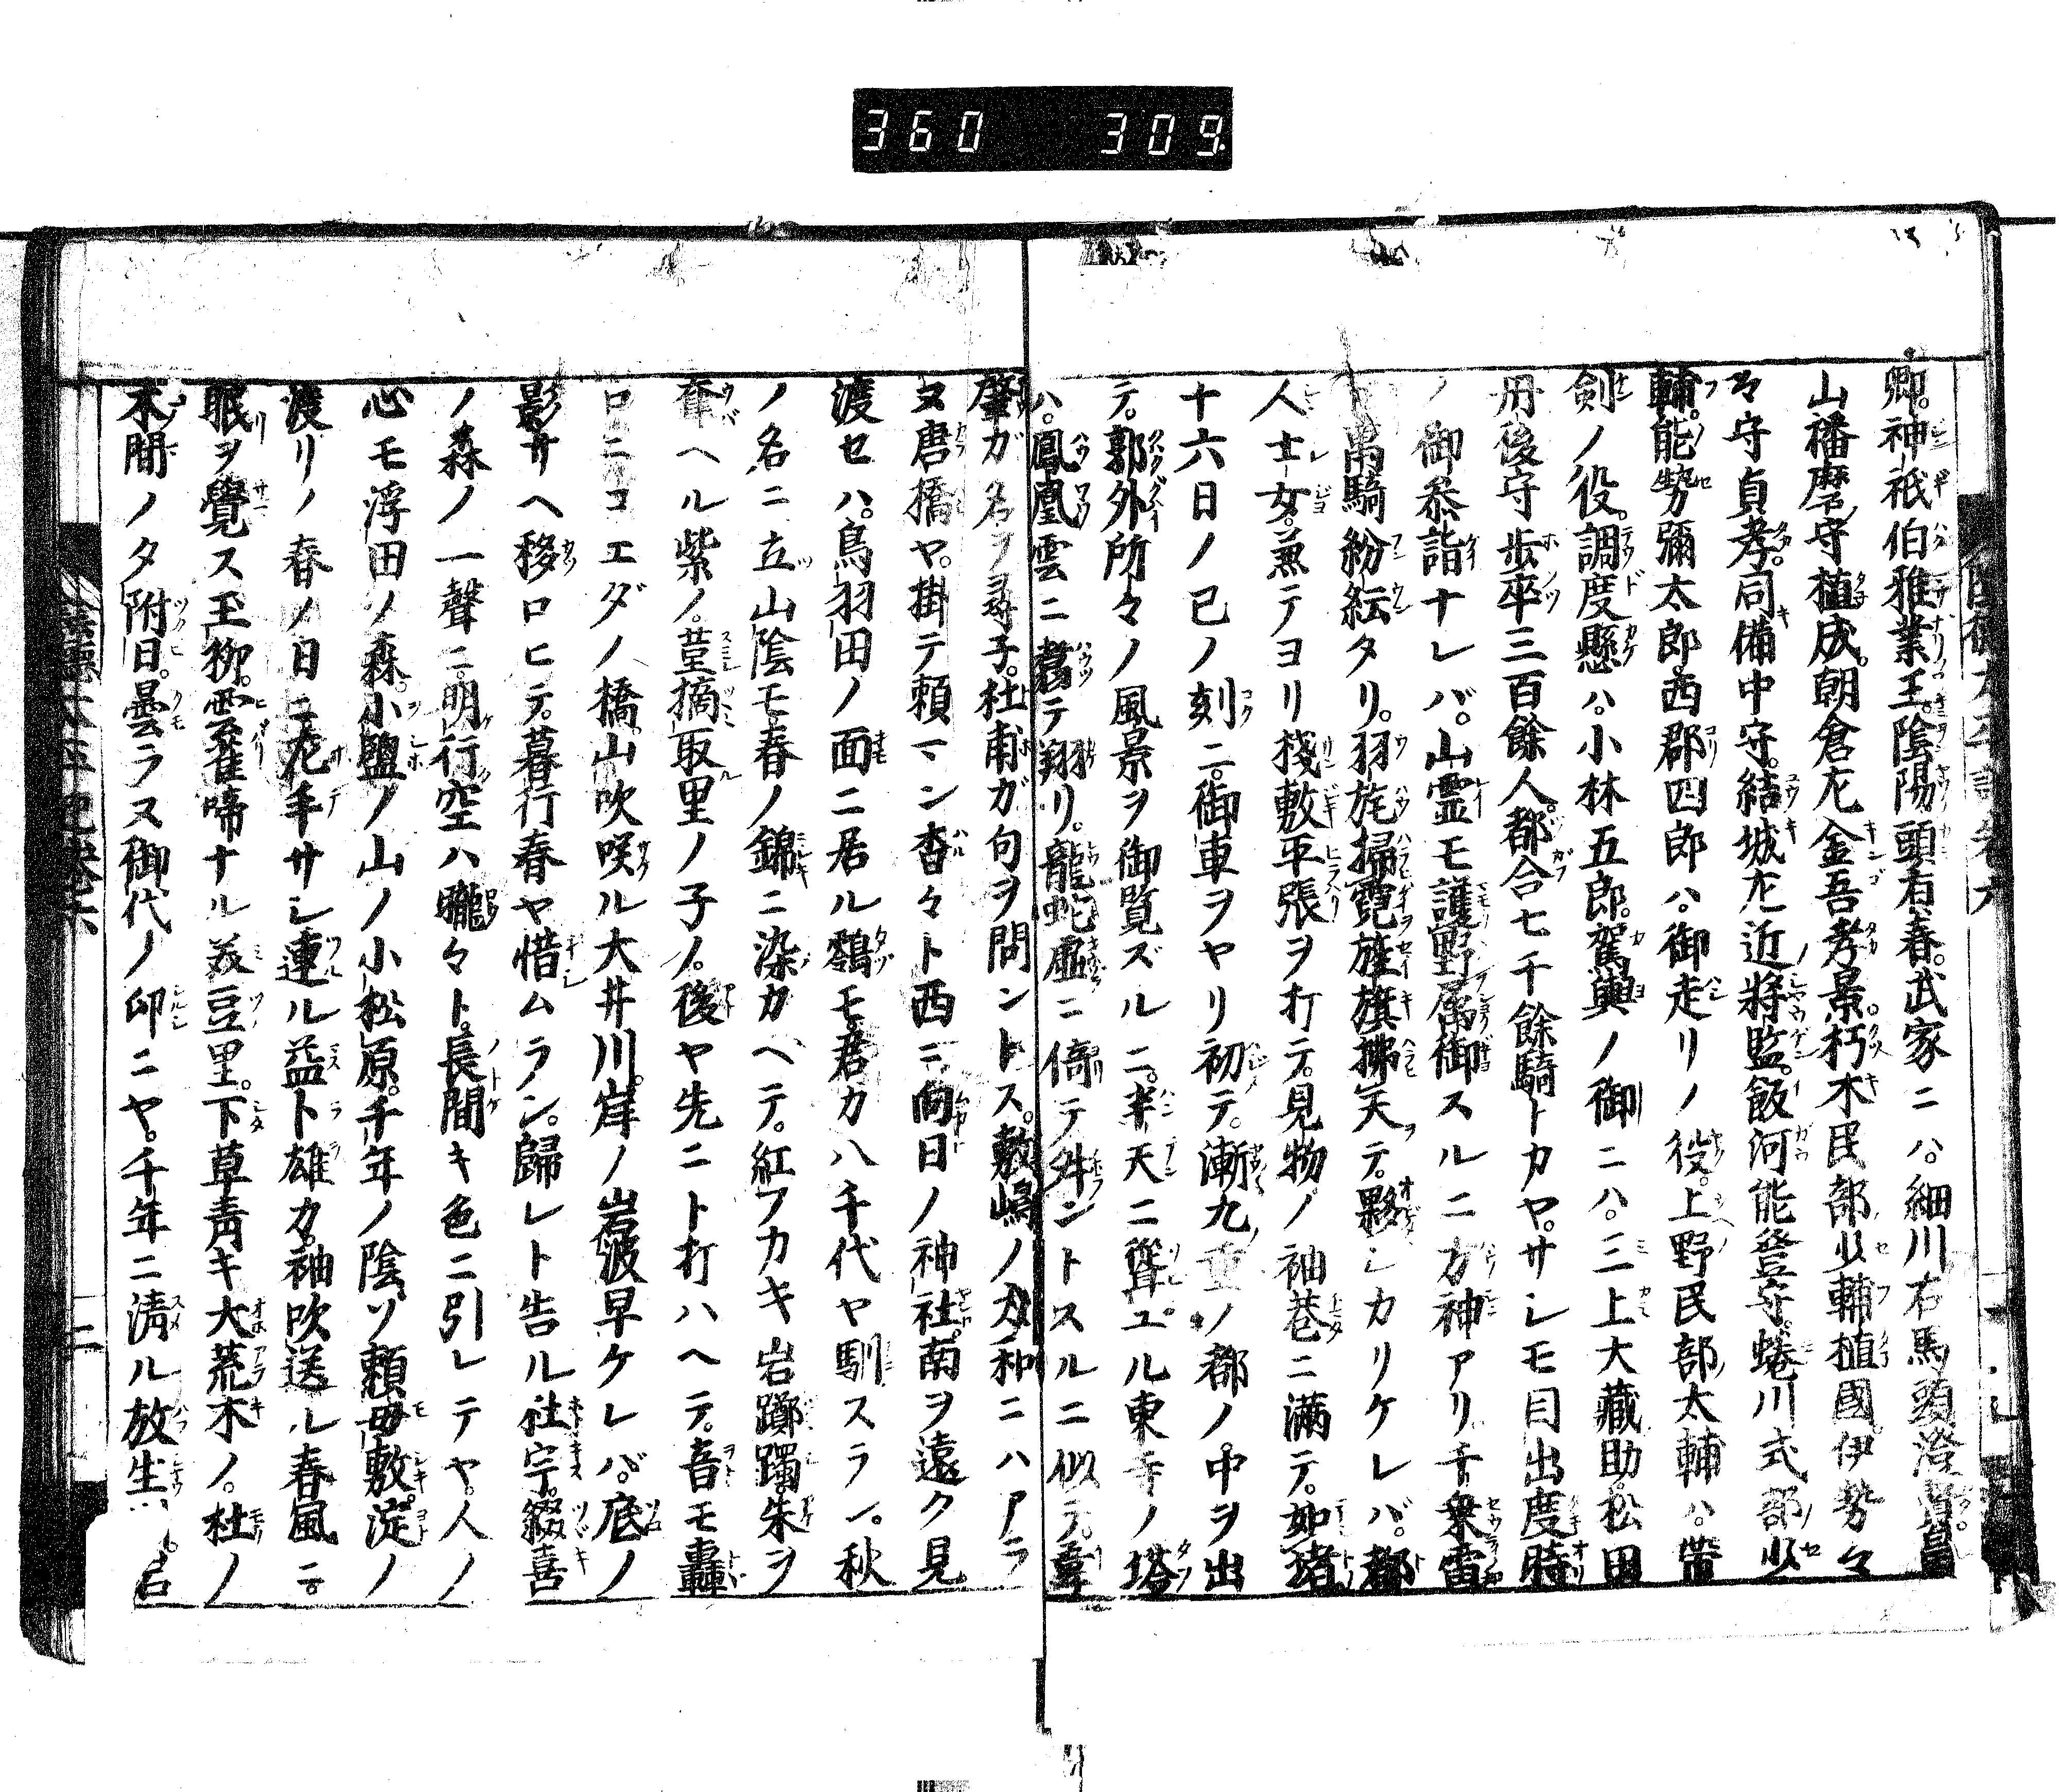 360 309
卿。神祇伯雅業王。陰陽頭有春。武家ニハ。細川右馬頭澄賢昌
山播磨守植成。朝倉左金吾孝景。朽木民部少輔植國。伊勢々
守貞孝。同備中守。結城左近將監。飯河能登守。蜷川式部少
輔。能勢彌太郎。西郡四郎ハ。御走リノ役。上野民部太輔ハ。帶
劍ノ役。調度懸ハ。小林五郎。駕輿ノ御ニハ。三上大藏助。松田
丹後守歩卒三百餘人。都合七千餘騎トカヤ。サレモ目出度時
ノ御參詣ナレバ。山霊モ護野属御スルニ力神アリ千乗雷
萬騎紛紜タリ。羽旄掃霓旌旗拂天テ。夥シカリケレバ。都
人士女。兼テヨリ棧敷平張ヲ打テ。見物ノ袖巷ニ満テ。如堵
十六日ノ已ノ刻ニ。御車ヲヤリ初テ。漸九重ノ都ノ。中ヲ出
テ。郭外所々ノ風景ヲ御覧ズルニ。半天ニ聳ユル東寺ノ塔
ハ。鳳凰雲ニ翥テ翔リ。龍蛇虚ニ倚テ舛ントスルニ似テ。韋
肇ガ名ヲ尋子。杜甫ガ句ヲ問ントス。敷嶋ノ大和ニハアラ
ヌ唐橋ヤ。掛テ頼マン杳々ト西ニ向日ノ神社。南ヲ遠ク見
渡セハ。鳥羽田ノ面ニ居ル鶴モ。君カ八千代ヤ馴スラン。秋
ノ名ニ立山陰モ。春ノ錦ニ染カヘテ。紅フカキ岩躑躅。朱ヲ
奪ヘル紫ノ。菫摘取里ノ子ノ。後ヤ先ニト打ハヘテ。音モ轟
ロニコエダノ橋。山吹咲ル大井川。岸ノ岩波早ケレバ。底ノ
影サヘ移ロヒテ。暮行春ヤ惜ムラン。歸レト告ル社宇。綴喜
ノ森ノ一聲ニ。明行空ハ朧々ト。長閒キ色ニ引レテヤ。人ノ
心モ浮田ノ森。小鹽ノ山ノ小松原。千年ノ陰ソ頼毋敷。淀ノ
渡リノ春ノ日ニ。尨手サレ連ル益卜雄カ。袖吹送ル春風ニ。
眠ヲ覺ス玉柳。雲雀啼ナル美豆里。下草青キ大荒木ノ。杜ノ
木間ノタ附日。曇ラス御代ノ印ニヤ。千年ニ淸ル放生